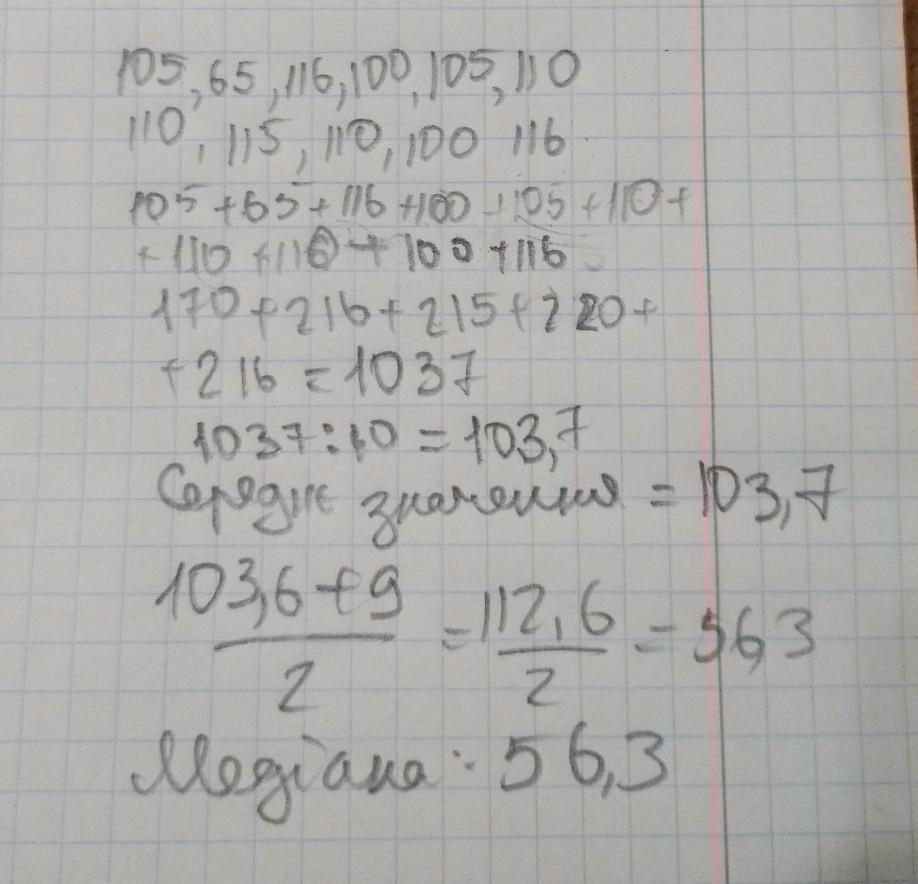 105, 65, 116, 100, 105, 110
110, 115, 110, 100 116
105 + 65 + 116 + 100 + 105 + 110 +
+ 110 + 110 + 100 + 116
170 + 216 + 215 + 220 +
+ 216 = 1037
1037 : 10 = 103,7
Середнє значення = 103,7
103,6 + 9 / 2 = 112,6 / 2 = 56,3
Медіана : 56,3